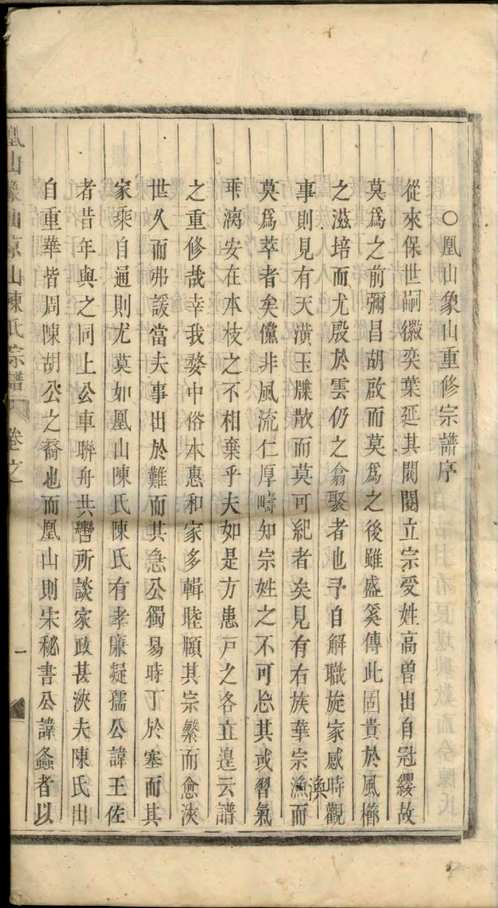 ○凰山象山重修宗譜序
從來保世嗣徽奕葉延其閥閱立宗受姓高曾出自冠纓故
莫爲之前彌昌胡啟而莫爲之後雖盛奚傳此固貴於風櫛
之滋培而尤殷於雲仍之翕聚者也予自解職旋家感時觀
事則見有天潢玉牒散而莫可紀者矣見有右族華宗渙而
渙
莫爲萃者矣儻非風流仁厚疇知宗姓之不可忘其或習氣
乖漓安在本枝之不相棄乎夫如是方患戸之各立遑云譜
之重修哉幸我婺中俗本惠和家多輯睦願其宗繁而愈浹
世久而弗諼當夫事出於難而其急公獨易時丁於塞而其
家乘自通則尤莫如凰山陳氏陳氏有孝廉凝孺公諱王佐
者昔年與之同上公車聯舟共轡所談家政甚浹夫陳氏出
自重華皆周陳胡公之裔也而凰山則宋秘書公諱鱻者以
凰山象山凉山陳氏宗譜 卷之一
一